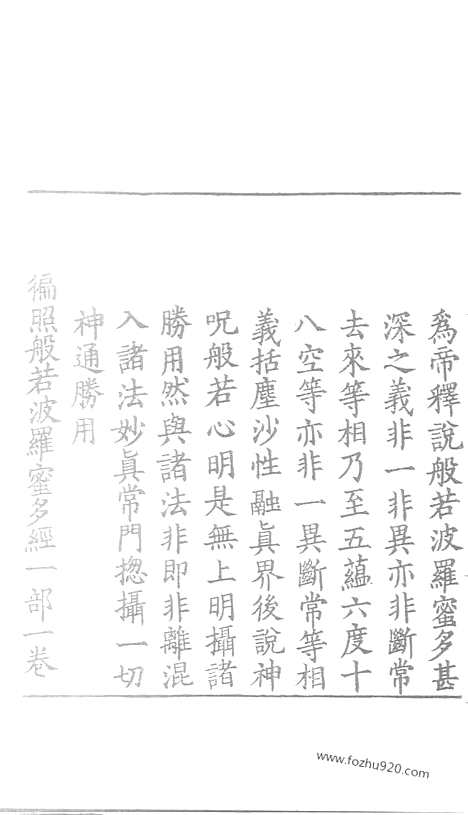 爲帝釋說般若波羅蜜多甚
深之義非一非異亦非斷常
去來等相乃至五蘊六度十
八空等亦非一異斷常等相
義括塵沙性融眞界後說神
呪般若心明是無上明攝諸
勝用然與諸法非即非離混
入諸法妙眞常門揔攝一切
神通勝用
徧照般若波羅蜜多經一部一卷
www.fozhu920.com